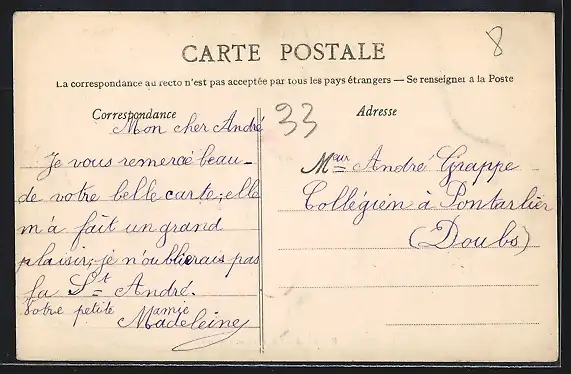 8
CARTE POSTALE
La correspondance au recto n'est pas acceptée par tous les pays étrangers — Se renseigner à la Poste
Correspondance
33
Adresse
Mon cher André
Je vous remercie beau-
de votre belle carte; elle
m'a fait un grand
plaisir; je n'oublierais pas
la St André.
Votre petite amie
Madeleine
Mr André Grappe
Collégien à Pontarlier
(Doubs)